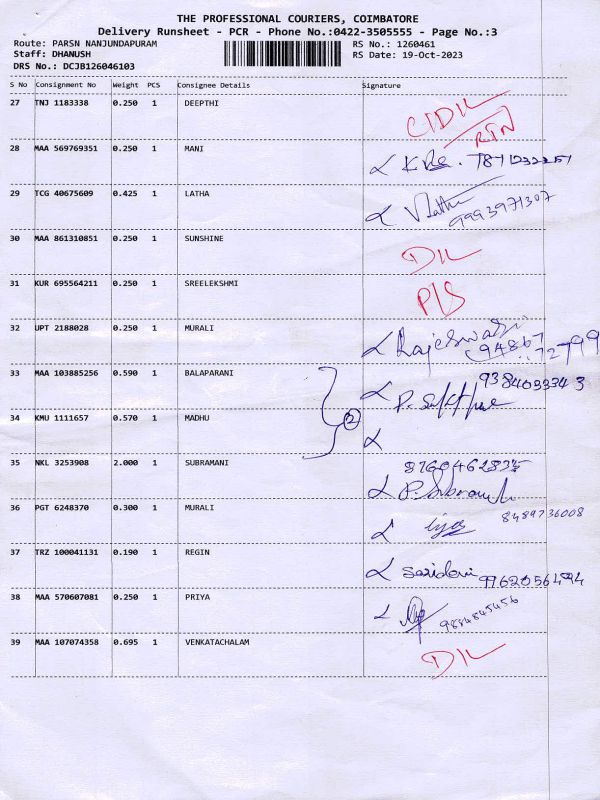 THE PROFESSIONAL COURIERS, COIMBATORE
Delivery Runsheet - PCR - Phone No.:0422-3505555 - Page No.:3
Route: PARSN NANJUNDAPURAM
Staff: DHANUSH
DRS No.: DCJB126046103
RS No.: 1260461
RS Date: 19-Oct-2023
S No Consignment No Weight PCS Consignee Details Signature
27 TNJ 1183338 0.250 1 DEEPTHI
RTN
28 MAA 569769351 0.250 1 MANI
29 TCG 40675609 0.425 1 LATHA
Latha 9993971307
30 MAA 861310851 0.250 1 SUNSHINE
DIL
31 KUR 695564211 0.250 1 SREELEKSHMI
P/S
32 UPT 2188028 0.250 1 MURALI
Rajeswari 94867 72799
33 MAA 103885256 0.590 1 BALAPARANI
9384033343
34 KMU 1111657 0.570 1 MADHU
2
35 NKL 3253908 2.000 1 SUBRAMANI
P.
36 PGT 6248370 0.300 1 MURALI
8489736008
37 TRZ 100041131 0.190 1 REGIN
Saridevi 9762056494
38 MAA 570607081 0.250 1 PRIYA
9884845456
39 MAA 107074358 0.695 1 VENKATACHALAM
DIL